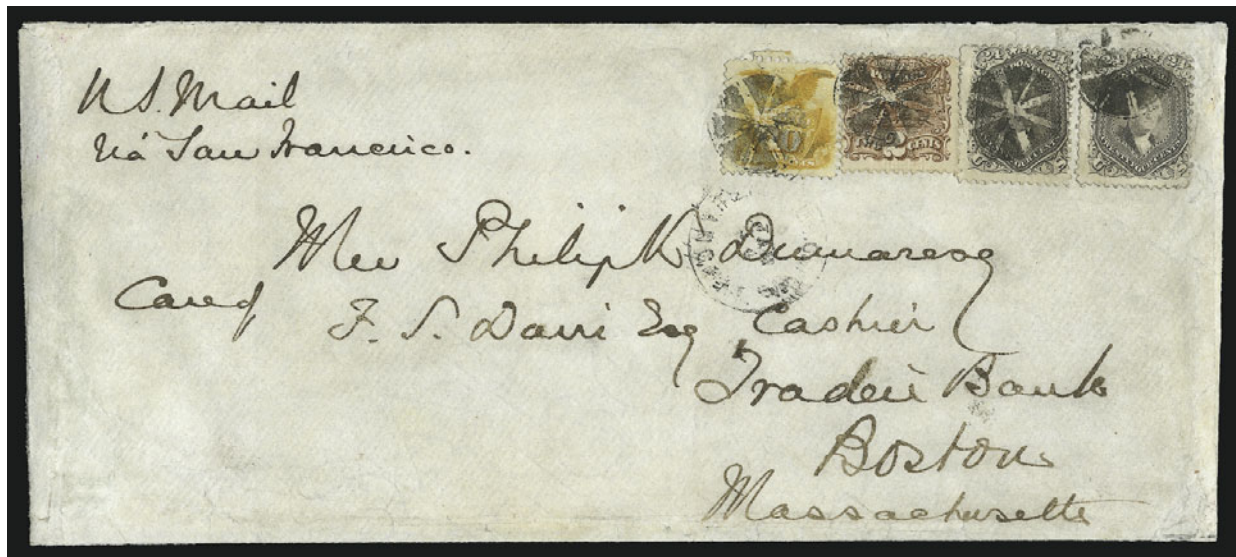 U.S. Mail
Via San Francisco.
Mrs Philip K. Dumaresq
Care of F. S. Davis Esq Cashier
Traders Bank
Boston
Massachusetts
24 24 24 24
2 CENTS